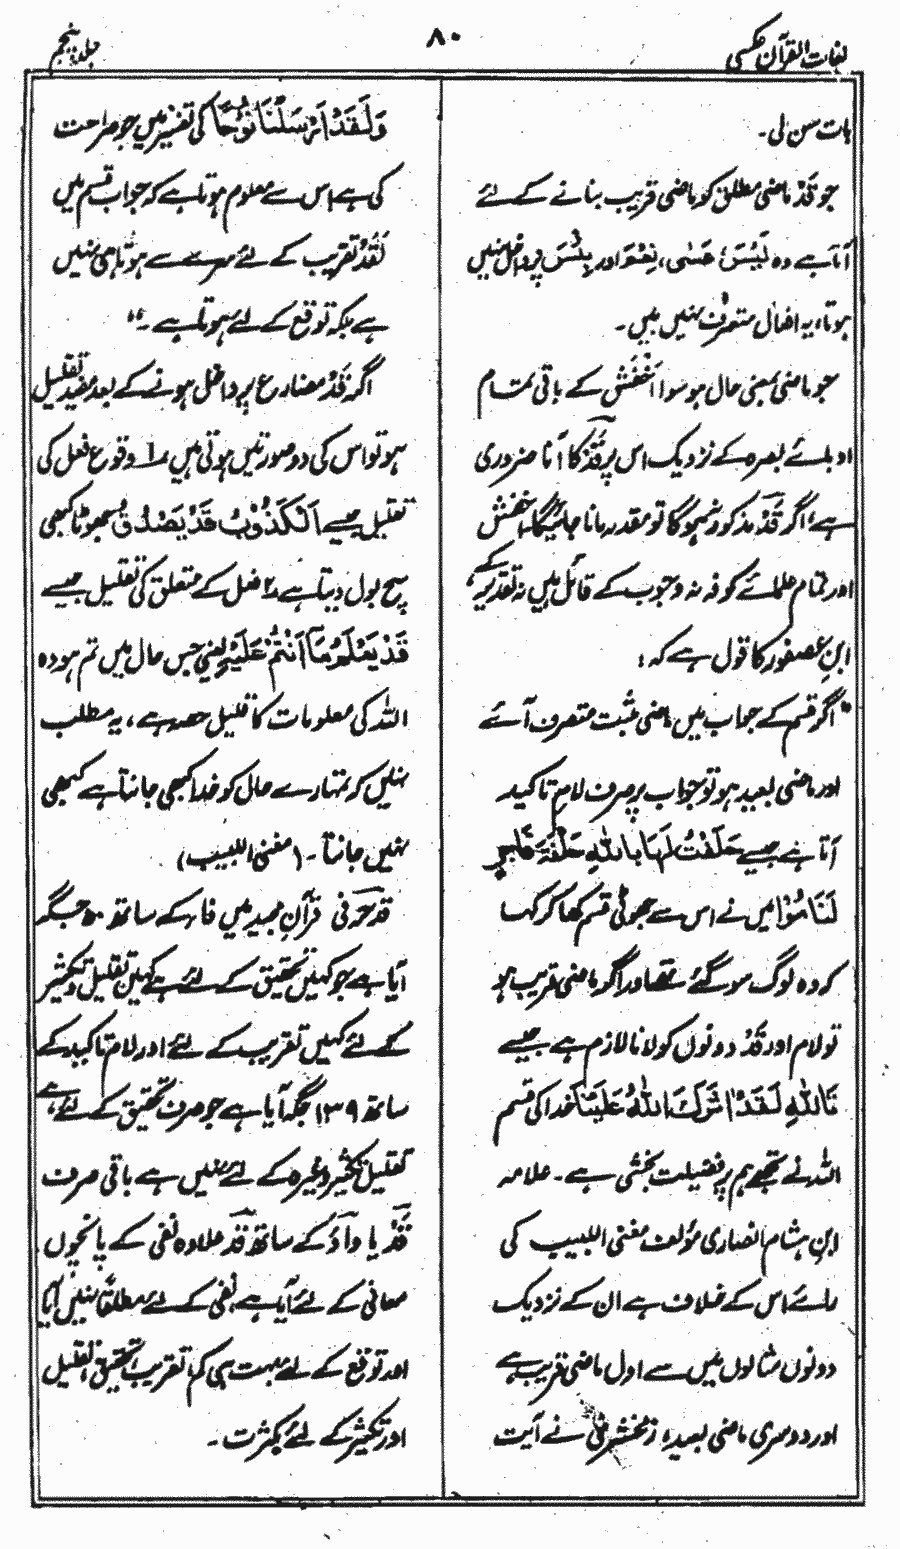 لغات القرآن عکسی
۸۰
جلد پنجم
بات سن لی۔
جو قَدْ ماضی مطلق کو ماضی قریب بنانے کے لئے
آتا ہے وہ لَیْسَ، عَسٰی، نِعْمَ اور بِئْسَ پر داخل نہیں
ہوتا، یہ افعال متصرف نہیں ہیں۔
جو ماضی بمعنی حال ہو سوا اَخْفَش کے باقی تمام
ادبائے بصرہ کے نزدیک اس پر قَدْ کا آنا ضروری
ہے، اگر قَدْ مذکور نہ ہو گا تو مقدر مانا جائیگا۔ اخفش
اور تمام علمائے کوفہ نہ وجوب کے قائل ہیں نہ تقدیر کے،
ابنِ عصفور کا قول ہے کہ :
"اگر قسم کے جواب میں ماضی مثبت متصرف آئے
اور ماضی بعید ہو تو جواب پر صرف لامِ تاکید
آتا ہے جیسے حَلَفْتُ لَہَا بِاللّٰہِ حَلْفَۃَ فَاجِرٍ
لَنَامُوْا میں نے اس سے جھوٹی قسم کھا کر کہا
کہ وہ لوگ سو گئے تھے اور اگر ماضی قریب ہو
تو لام اور قَدْ دونوں کو لانا لازم ہے جیسے
تَاللّٰہِ لَقَدْ اٰثَرَکَ اللّٰہُ عَلَیْنَا خدا کی قسم
اللہ نے تجھے ہم پر فضیلت بخشی ہے۔ علامہ
ابنِ ہشام انصاری مؤلف مغنی اللبیب کی
رائے اس کے خلاف ہے ان کے نزدیک
دونوں مثالوں میں سے اول ماضی قریب ہے
اور دوسری ماضی بعید، زمخشری نے آیت
وَلَقَدْ اَرْسَلْنَا نُوْحًا کی تفسیر میں جو صراحت
کی ہے اس سے معلوم ہوتا ہے کہ جواب قسم میں
لَقَدْ تقریب کے لئے سرے سے ہوتا ہی نہیں
ہے بلکہ توقع کے لئے ہوتا ہے۔"
اگر قَدْ مضارع پر داخل ہونے کے بعد مفید تقلیل
ہو تو اس کی دو صورتیں ہوتی ہیں ۱ وقوع فعل کی
تقلیل جیسے اَلْکَذُوْبُ قَدْ یَصْدُقُ جھوٹا کبھی
سچ بول دیتا ہے ۲ فعل کے متعلق کی تقلیل جیسے
قَدْ یَعْلَمُ مَا اَنْتُمْ عَلَیْہِ یعنی جس حال میں تم ہو وہ
اللہ کی معلومات کا قلیل حصہ ہے، یہ مطلب
نہیں کہ تمہارے حال کو خدا کبھی جانتا ہے کبھی
نہیں جانتا۔ (مغنی اللبیب)
قد حرفی قرآن مجید میں فا کے ساتھ ۵۰ جگہ
آیا ہے جو کہیں تحقیق کے لئے ہے کہیں تقلیل و تکثیر
کے لئے کہیں تقریب کے لئے اور لام تاکید کے
ساتھ ۱۳۹ جگہ آیا ہے جو صرف تحقیق کے لئے ہے،
تقلیل تکثیر وغیرہ کے لئے نہیں ہے باقی صرف
قَدْ یا واؤ کے ساتھ قد علاوہ نفی کے پانچوں
معانی کے لئے آیا ہے، نفی کے لئے مطلقاً نہیں آیا
اور توقع کے لئے بہت ہی کم، تقریب، تحقیق، تقلیل
اور تکثیر کے لئے بکثرت۔